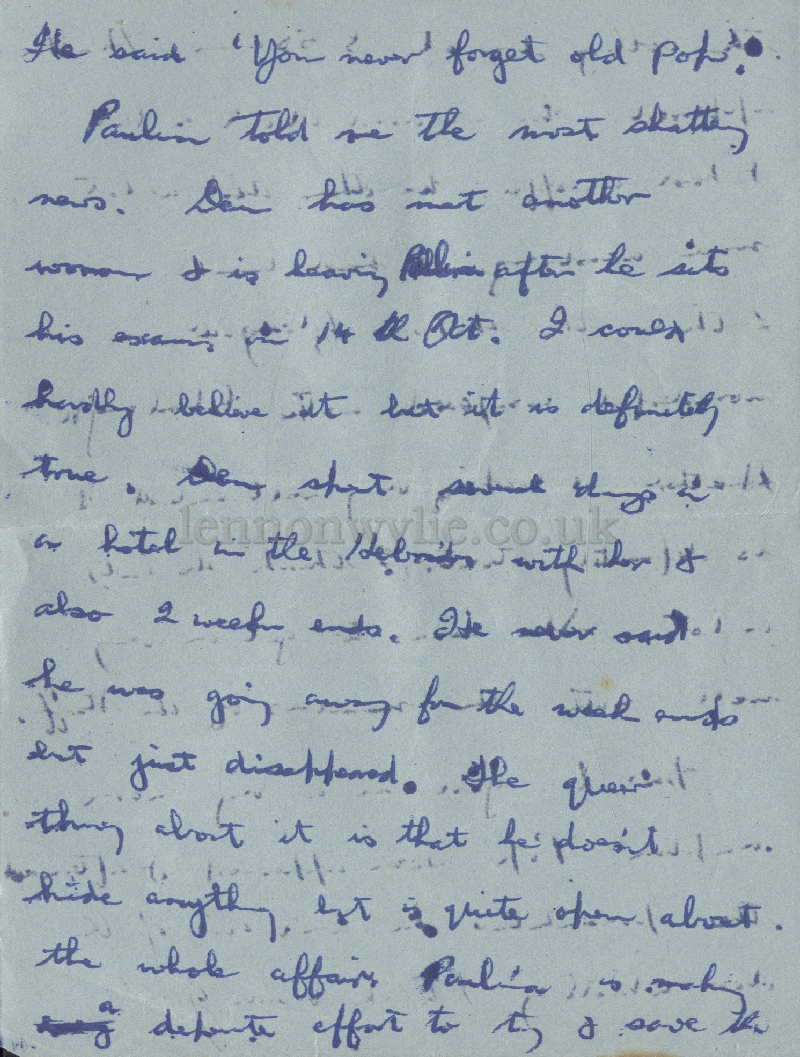 He said 'You never forget old Pop'.
Pauline told me the most shattering
news. Den has met another
woman & is leaving Pauline after he sits
his exams in 14th Oct. I could
hardly believe it but it is definitely
true. Den spent several days in
a hotel in the Hebrides with her &
also 2 week ends. He never said
he was going away for the week ends
but just disappeared. The queer
thing about it is that he doesn't
hide anything but is quite open about
the whole affair. Pauline is making
a desperate effort to try & save the
lennonwylie.co.uk